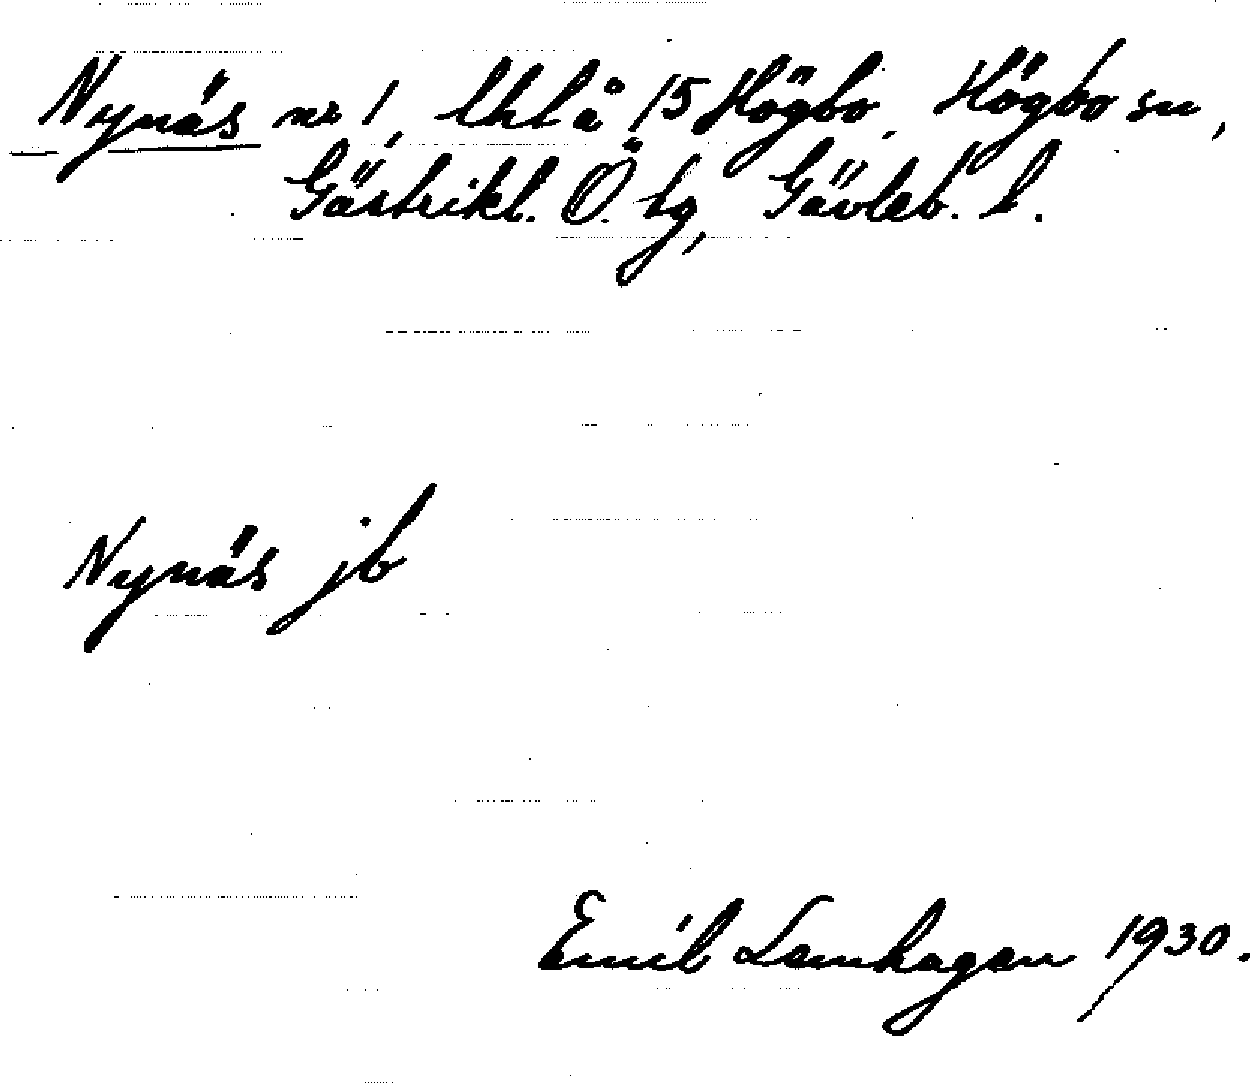 Nynäs nr 1, Uhlå 15 Högbo, Högbo sn,
Gästrikl. Ö. tg, Gävleb. l.
Nynäs jb
Emil Lamhagen 1930.